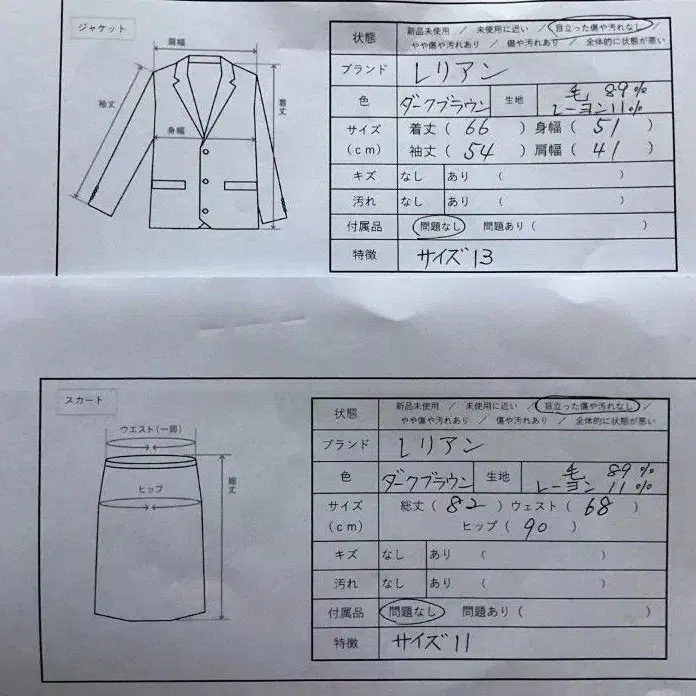 ジャケット
肩幅
袖丈
身幅
着丈
状態 新品未使用 / 未使用に近い / 目立った傷や汚れなし /
やや傷や汚れあり / 傷や汚れあり / 全体的に状態が悪い
ブランド レリアン
色 ダークブラウン 生地 毛 89%
レーヨン11%
サイズ 着丈 ( 66 ) 身幅 ( 51 )
(cm) 袖丈 ( 54 ) 肩幅 ( 41 )
キズ なし あり ( )
汚れ なし あり ( )
付属品 問題なし 問題あり ( )
特徴 サイズ13
スカート
ウエスト(一周)
ヒップ
総丈
状態 新品未使用 / 未使用に近い / 目立った傷や汚れなし /
やや傷や汚れあり / 傷や汚れあり / 全体的に状態が悪い
ブランド レリアン
色 ダークブラウン 生地 毛 89%
レーヨン 11%
サイズ 総丈 ( 82 ) ウェスト ( 68 )
(cm) ヒップ ( 90 )
キズ なし あり ( )
汚れ なし あり ( )
付属品 問題なし 問題あり ( )
特徴 サイズ11